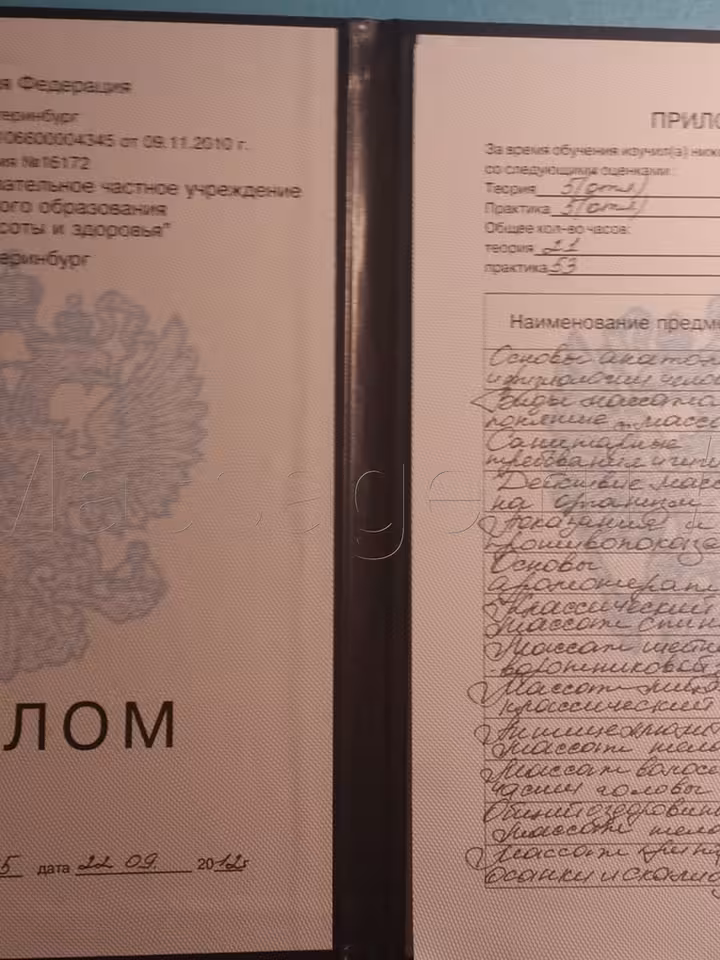 я Федерация
еринбург
106600004345 от 09.11.2010 г.
ия №16172
вательное частное учреждение
ого образования
соты и здоровья"
еринбург
ЛОМ
5 дата 22 09 2012г
ПРИЛО
За время обучения изучил(а) ниж
со следующими оценками:
Теория 5(отл)
Практика 5(отл)
Общее кол-во часов:
теория 21
практика 53
Наименование предме
Основы анатом
и физиологии челов
Виды массажа
понятие массо
Санитарные
требования и гиги
Действие масс
на организм
Показания и
противопоказа
Основы
аромотерап
Классический
массаж спин
Массаж шейн
воротниковой
Массаж
классический
Антицеллюлит
массаж тела
Массаж волос
части головы
Общий оздоровит
массаж тела
Массаж при
осанки и сколио
Massage